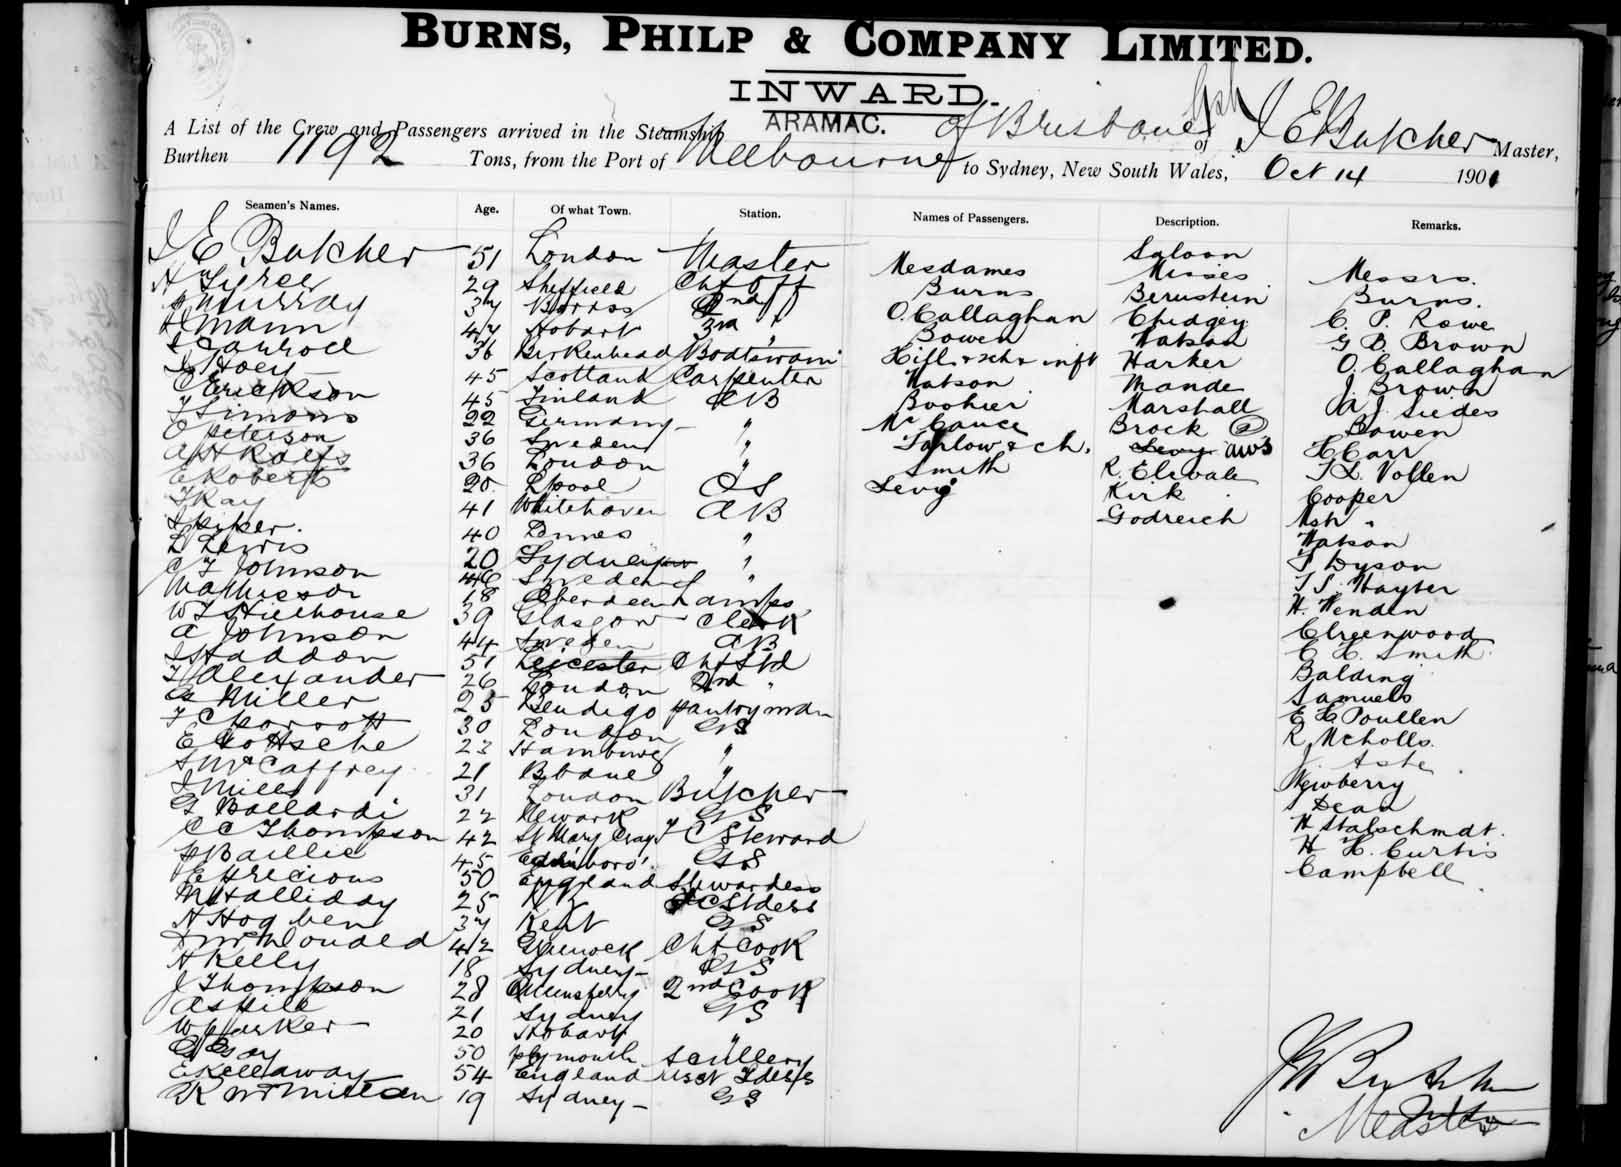 BURNS, PHILP & COMPANY LIMITED.
INWARD.
A List of the Crew and Passengers arrived in the Steamship ARAMAC. of Brisbane of J E Butcher Master,
Burthen 1192 Tons, from the Port of Melbourne to Sydney, New South Wales, Oct 14 1901
Seamen's Names. Age. Of what Town. Station. Names of Passengers. Description. Remarks.
J E Butcher 51 London Master
29 Sheffield Chf Off
Murray 37 2nd "
Mann 47 Hobart 3rd "
36 Birkenhead Boatswain
J Hoey 45 Scotland Carpenter
C Erickson 45 Finland AB
J Simons 22 Germany "
C Peterson 36 Sweden "
36 London "
E Roberts 20 L'pool OS
J Kay 41 Whitehaven AB
40 "
L Lewis 20 Sydney "
C F Johnson 46 Sweden "
Mathieson 18 Aberdeen Lamps
W J Hillhouse 39 Glasgow Clerk
A Johnson 44 Sweden AB
J Haddon 51 Leicester Chf Std
J Alexander 26 London 2nd "
A Miller 25 Bendigo pantryman
30 London GS
E Gottsche 23 Hamburg "
S McCaffrey 21 Bbane "
J Mills 31 London Butcher
G Ballardi 22 Newark GS
C C Thompson 42 St Mary Cray F C Steward
Baillie 45 Edinboro' GS
E Precious 50 England Stewardess
M Halliday 25 N Z F C Stdess
A Hogben 37 Kent GS
McDonald 42 Greenock Chf Cook
A Kelly 18 Sydney GS
J Thompson 28 Queensferry 2nd Cook
A S Hill 21 Sydney GS
W Parker 20 Hobart "
50 Plymouth Scullery
E Kellaway 54 England Asst Stdess
R McMillan 19 Sydney GS
Saloon
Mesdames
Burns
O'Callaghan
Bowen
Hill & sch & inft
Watson
Boohier
McCance
Tarlow & ch.
Smith
Levy
Misses
Bernstein
Chidgey
Watson
Harker
Mande
Marshall
Brock (2)
Levy
R. Elevale
Kirk
Godreich
Messrs.
Burns.
C. P. Rowe
G B Brown
O. Callaghan
J. Brown
A J. Siedes
Bowen
H Carr
T L. Vollen
Cooper
Ash "
Watson
T Dyson
T S. Hayter
H. Wendin
C Greenwood
C H. Smith
Balding
Samuels
E H Poullen
R Nicholls.
J. Ashe
Newberry
Dean
H Stalschmdt.
H H. Curtis
Campbell
Master